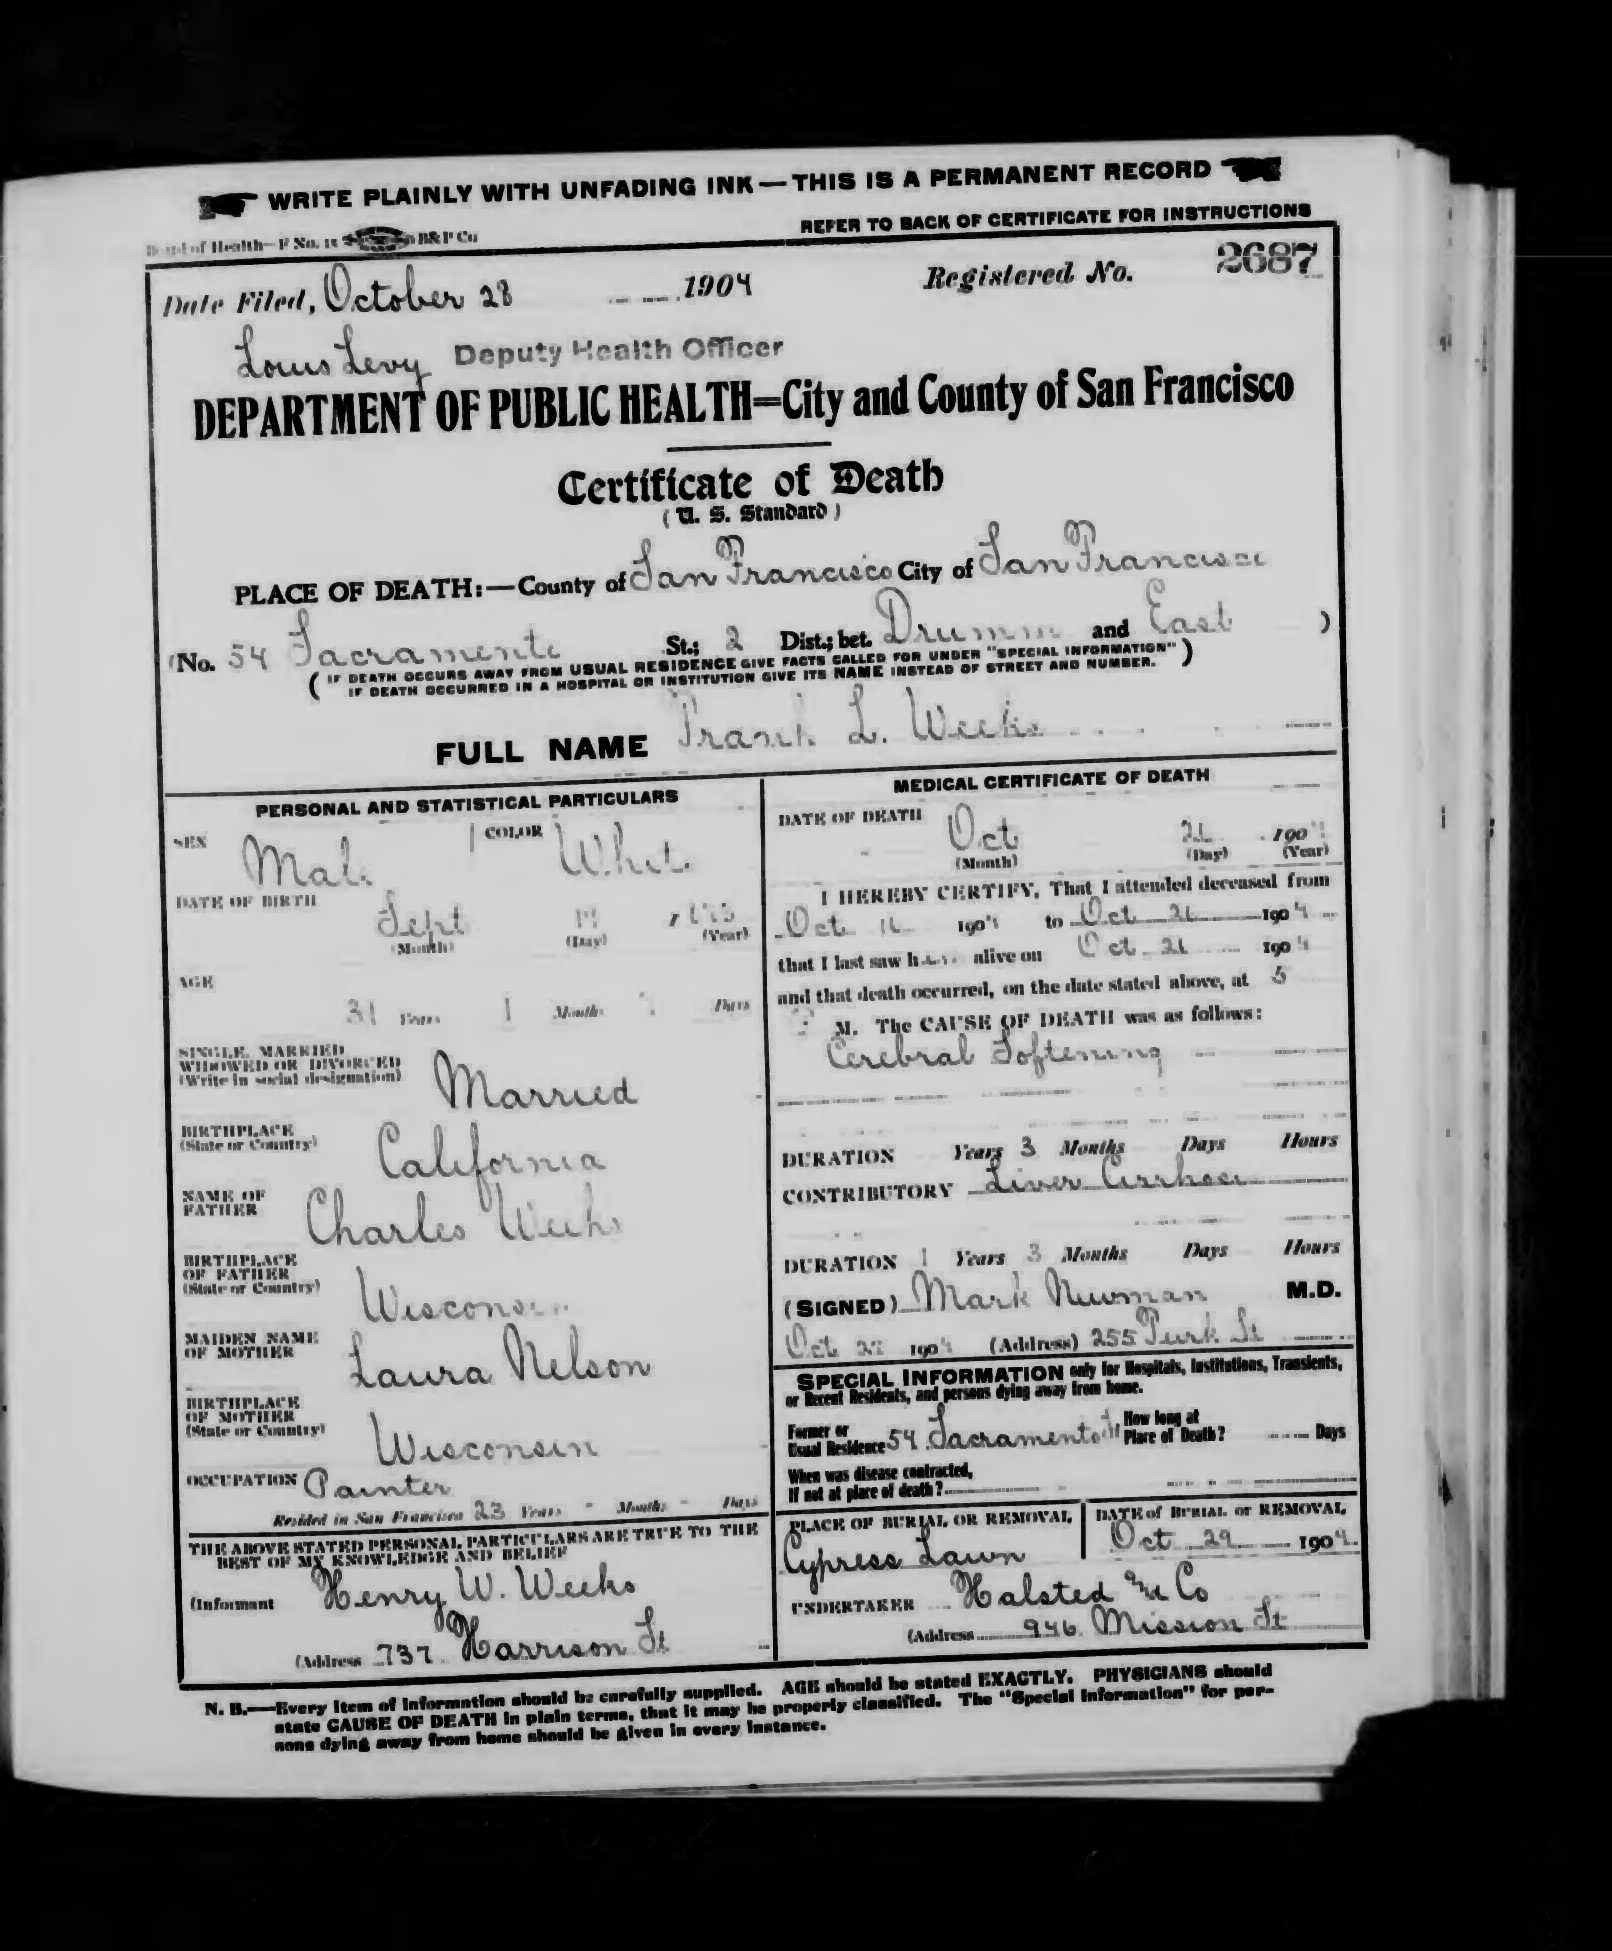 WRITE PLAINLY WITH UNFADING INK—THIS IS A PERMANENT RECORD
Board of Health—F No. 15 B&P Co
REFER TO BACK OF CERTIFICATE FOR INSTRUCTIONS
Date Filed, October 28 1904 Registered No. 2687
Louis Levy Deputy Health Officer
DEPARTMENT OF PUBLIC HEALTH=City and County of San Francisco
Certificate of Death
(U. S. Standard)
PLACE OF DEATH:—County of San Francisco City of San Francisco
(No. 54 Sacramento St.; 2 Dist.; bet. Drumm and East )
( IF DEATH OCCURS AWAY FROM USUAL RESIDENCE GIVE FACTS CALLED FOR UNDER "SPECIAL INFORMATION" )
IF DEATH OCCURRED IN A HOSPITAL OR INSTITUTION GIVE ITS NAME INSTEAD OF STREET AND NUMBER.
FULL NAME Frank L. Weeks
PERSONAL AND STATISTICAL PARTICULARS
SEX Male COLOR White
DATE OF BIRTH
Sept
(Month) (Day) (Year)
AGE
31 Years 1 Months Days
SINGLE, MARRIED
WIDOWED OR DIVORCED
(Write in social designation) Married
BIRTHPLACE
(State or Country) California
NAME OF
FATHER Charles Weeks
BIRTHPLACE
OF FATHER
(State or Country) Wisconsin
MAIDEN NAME
OF MOTHER Laura Nelson
BIRTHPLACE
OF MOTHER
(State or Country) Wisconsin
OCCUPATION Painter
Resided in San Francisco 23 Years - Months - Days
THE ABOVE STATED PERSONAL PARTICULARS ARE TRUE TO THE
BEST OF MY KNOWLEDGE AND BELIEF
(Informant Henry W. Weeks
(Address 737 Harrison St
MEDICAL CERTIFICATE OF DEATH
DATE OF DEATH
Oct 26 1904
(Month) (Day) (Year)
I HEREBY CERTIFY, That I attended deceased from
Oct 1904 to Oct 26 1904
that I last saw him alive on Oct 26 1904
and that death occurred, on the date stated above, at 5
M. The CAUSE OF DEATH was as follows:
Cerebral Softening
DURATION Years 3 Months Days Hours
CONTRIBUTORY Liver Cirrhosis
DURATION 1 Years 3 Months Days Hours
(SIGNED) Mark Newman M.D.
Oct 1904 (Address) 255 Turk St
SPECIAL INFORMATION only for Hospitals, Institutions, Transients,
or Recent Residents, and persons dying away from home.
Former or
Usual Residence 54 Sacramento St How long at
Place of Death? Days
When was disease contracted,
If not at place of death?
PLACE OF BURIAL OR REMOVAL
Cypress Lawn
DATE of BURIAL or REMOVAL
Oct 29 1904
UNDERTAKER Halsted & Co
(Address 946 Mission St
N. B.—Every item of information should be carefully supplied. AGE should be stated EXACTLY. PHYSICIANS should
state CAUSE OF DEATH in plain terms, that it may be properly classified. The "Special Information" for per-
sons dying away from home should be given in every instance.